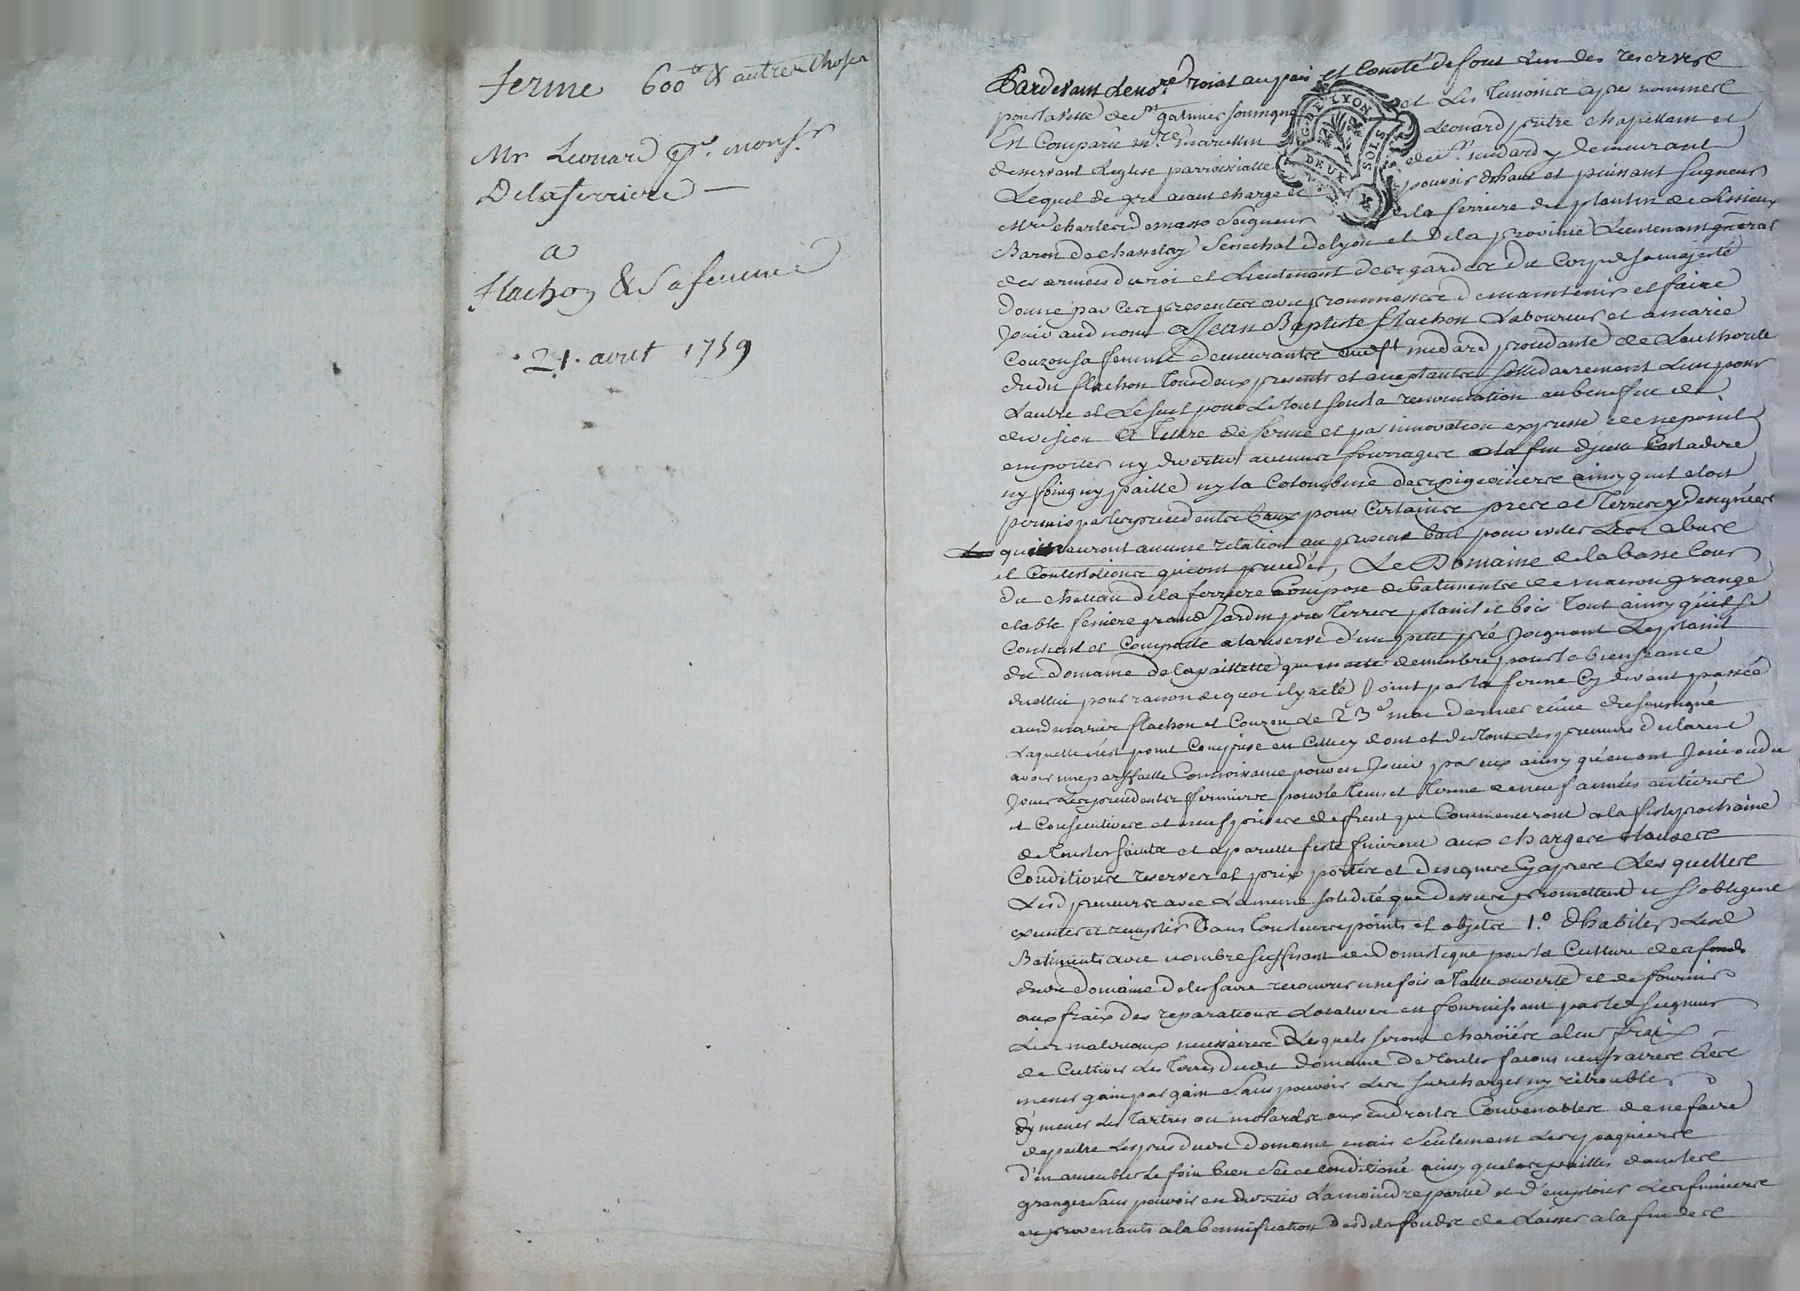 ferme 600tt & autres choses
Mr Leonard pr. monsr
Delaferriere
a
flachon & sa femme
21. avril 1759
Pardevant le nore roial au païs et Comté de forest un des reservés
pour la ville de St galmier soussigné et les temoins apres nommés
Est Comparu mre marcellin Leonard prêtre chapellain et
desservant Leglise parroissialle de St medard y demeurant
Lequel de gré aiant charge et pouvoir de haut et puissant seigneur
Mre charles de masso seigneur de la ferriere du plantin de Lissieux
Baron de chasselay Senechal de lyon et de la province Lieutenant gñeral
des armées du roi et Lieutenant des gardes du Corps de sa majesté
Donne par ces presentes avec promesses de maintenir et faire
Jouir aud nom a Jean Baptiste flachon Laboureur et a marie
Couzon sa femme demeurants aud st medard procedante de Lauthorité
dudit flachon tous deux presents et acceptants solidairement L'un pour
Lautre et Le seul pour Le tout sous la renonciation au benefice de
division a titre de ferme et par innovation expresse de ne point
emporter ny divertir aucuns fourrages a la fin d'jceux Cest a dire
ny foin ny paille ny la Colombine des pigeoniers ainsy quil etoit
permis par les precedents baux pour Certains prés et terres y designées
qui n'auront aucune relation au present bail pour eviter Les abus
et Contestations qui ont precedés, Le Domaine de la basse Cour
du chateau de la ferriere Composé de batiments de maison grange
etable feniere grand Jardin prés terres planit et bois tout ainsy qu'il se
Consiste et Comporte a la reserve d'un petit pré Joignant Le planit
du domaine de la paillette qui en a été demembré pour la bienseance
dicellui pour raison de quoi il y a été Joint par la ferme Cy devant passée
aud mariés flachon et Couzon le 23e mai dernier reçue du soussigné
Laquelle n'est point Comprise en Celle cy dont et du tout Les preneurs declarent
avoir une parfaitte Connoissance pour en Jouir par eux ainsy qu'en ont Joui ou du
Jouir Les precedents fermiers pour le tems et terme de neuf années entieres
et Consecutives et neuf prises de fruit qui Commenceront a la feste prochaine
de tous les saints et a pareille feste finiront aux charges clauses
Conditions reserves et prix portés et designés Cy apres Les quelles
Lesd preneurs avec La meme solidité que dessus promettent et s'obligent
executer et remplir Dans tous leurs points et objets 1.º d'habiter Lesd
Batiments avec nombre suffisant de Domestique pour la Culture des fonds
dudit domaine de les faire recouvrir une fois a taille ouverte et de fournir
aux fraix des reparations Locatives en fournissant par led seigneur
Les materiaux necessaires Lesquels seront charoiés a leur fraix
de Cultiver Les terres dudit domaine de toutes façons necessaires Les
mener gain par gain sans pouvoir Les surcharger ny retroubler
d'y mener Les tartres ou molards aux endroits Convenables de ne faire
depaitre Les prés dudit domaine mais seulement Les paquiers
d'en ameubler Le foin bien sec et Conditioné ainsy que les pailles dans les
granges sans pouvoir en divertir La moindre partie et d'emploier Les fumiers
en provenants a la bonnification desd fonds de Laisser a la fin des